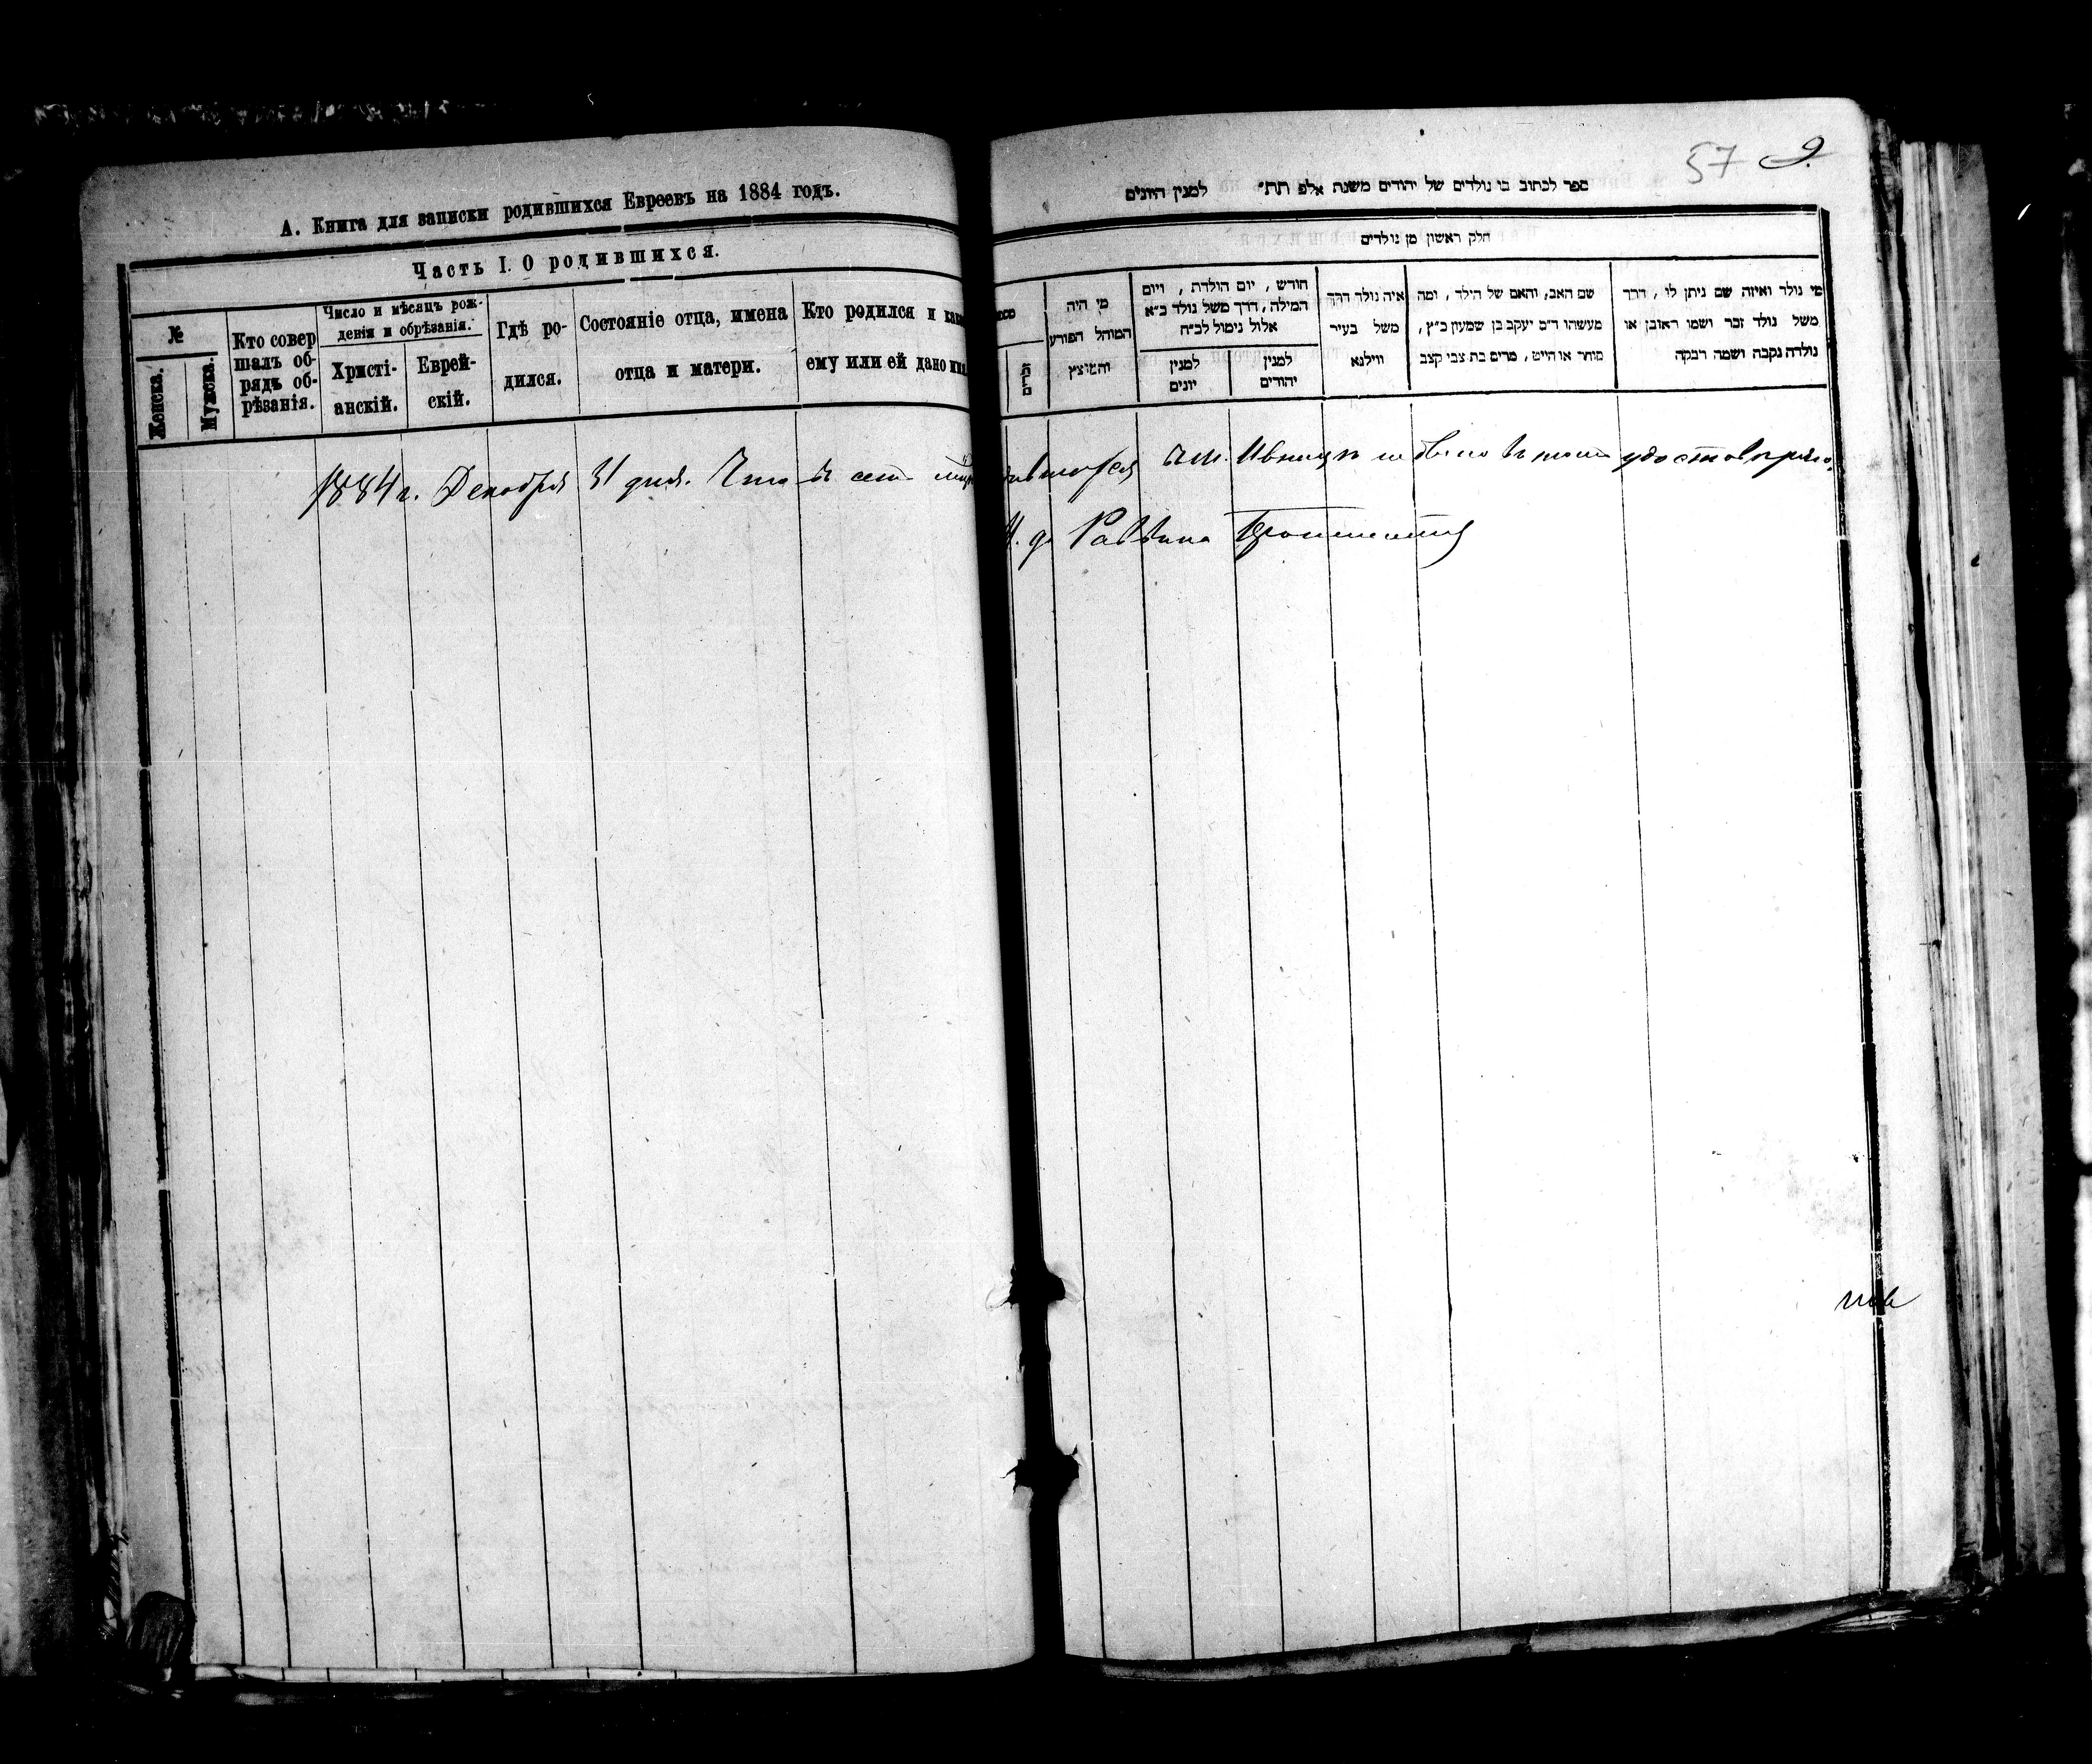 А. Книга для записки родившихся Евреевъ на 1884 годъ.
Часть I. О родившихся.
№
Женска.
Мужска.
Кто совер
шалъ об-
рядъ об-
рѣзанія.
Число и мѣсяцъ рож-
денія и обрѣзанія.
Христі-
анскій.
Еврей-
скій.
Гдѣ ро-
дился.
Состояніе отца, имена
отца и матери.
Кто родился и
ему или ей дано
57 9.
ספר לכתוב בו נולדים של יהודים משנת אלפ תת״ למנין היונים
חלק ראשון מן נולדים
מי היה
המוהל הפורע
והמוצץ
חודש, יום הולדת, ויום
המילה, דרך משל נולד כ״א
אלול נימול לכ״ח
למנין
יונים
למנין
יהודים
איה נולד דרך
משל בעיר
ווילנא
שם האב, והאם של הילד, ומה
מעשהו ד״מ יעקב בן שמעון כ״ץ,
סוחר או הייט, מרים בת צבי קצב
מי נולד ואיזה שם ניתן לו, דרך
משל נולד זכר ושמו ראובן או
נולדה נקבה ושמה רבקה
1884 г. Декабря 31 дня. Что въ сей удостовѣряю.
И. д. Раввина